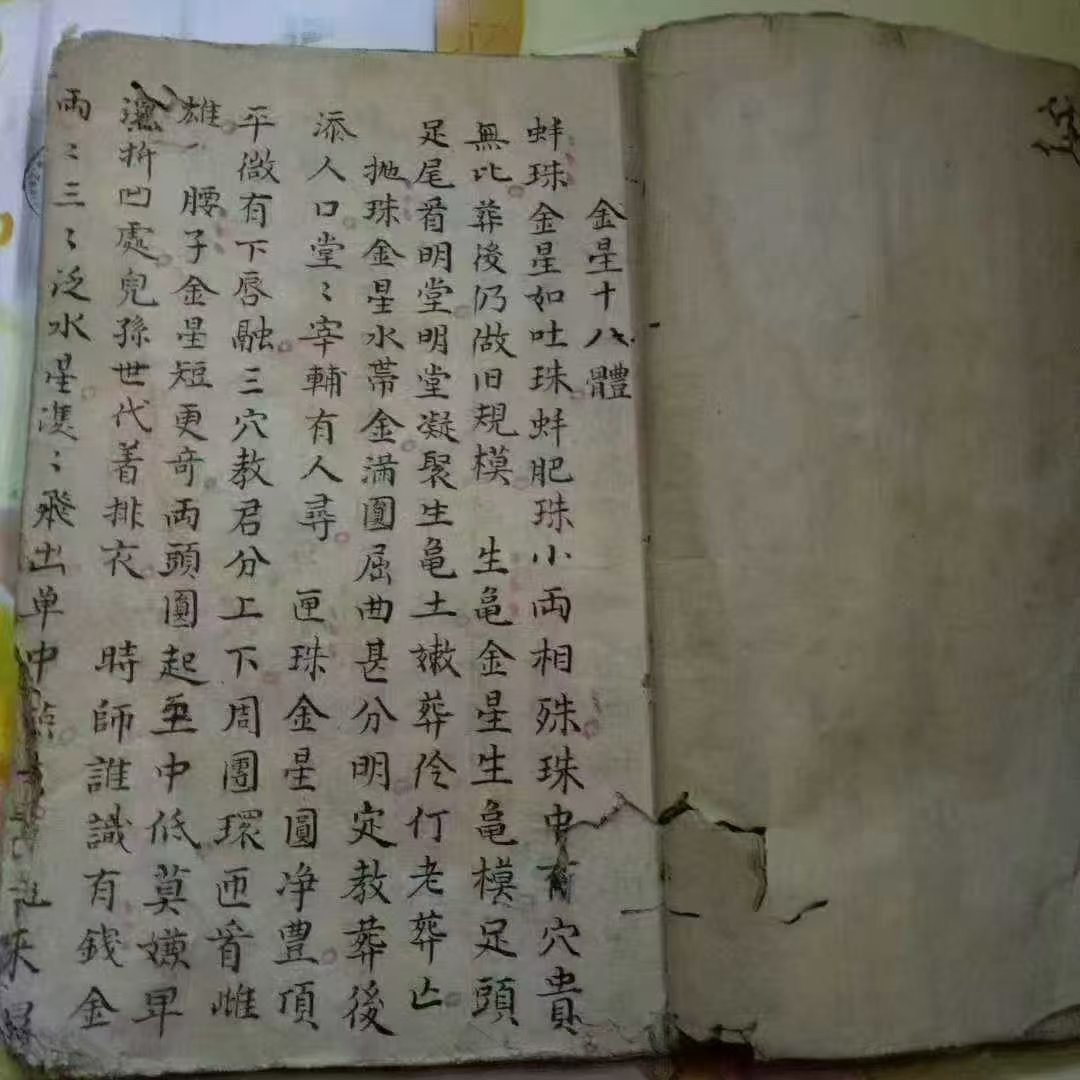 金星十八體
蚌珠金星如吐珠蚌肥珠小両相殊珠中有穴貴
無比葬後仍做旧規模 生亀金星生亀模足頭
足尾看明堂明堂凝聚生亀土嫩葬伶仃老葬亡
抛珠金星水帯金满圓屈曲甚分明定教葬後
添人口堂〻宰輔有人尋 匣珠金星圓净豊頂
平微有下唇融三穴教君分上下周團環匝看雌
雄 腰子金星短更奇両頭圓起至中低莫嫌旱
折凹處兒孫世代着排衣 時師誰識有錢金
両〻三〻泛水星雙〻飛出单中